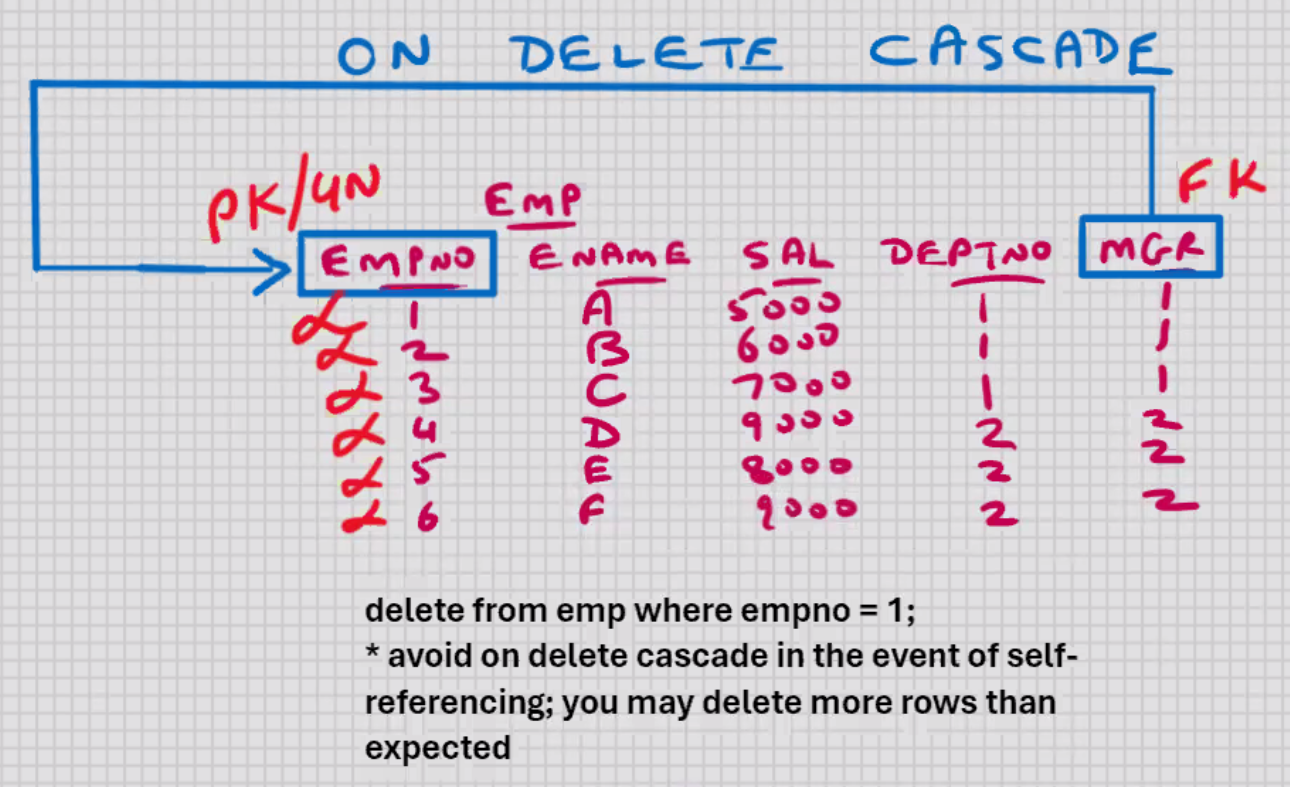 ON DELETE CASCADE
PK/UN
EMP
FK
EMPNO ENAME SAL DEPTNO MGR
1 A 5000 1 1
2 B 6000 1 1
3 C 7000 1 1
4 D 9000 2 2
5 E 8000 2 2
6 F 9000 2 2
delete from emp where empno = 1;
* avoid on delete cascade in the event of self-
referencing; you may delete more rows than
expected